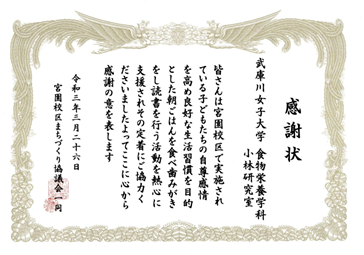 感謝状
武庫川女子大学 食物栄養学科
小林研究室
皆さんは宮園校区で実施され
ている子どもたちの自尊感情
を高め良好な生活習慣を目的
とした朝ごはんを食べ歯みがき
をし読書を行う活動を熱心に
支援されその定着にご協力く
ださいましたよってここに心から
感謝の意を表します
令和三年三月二十六日
宮園校区まちづくり協議会一同